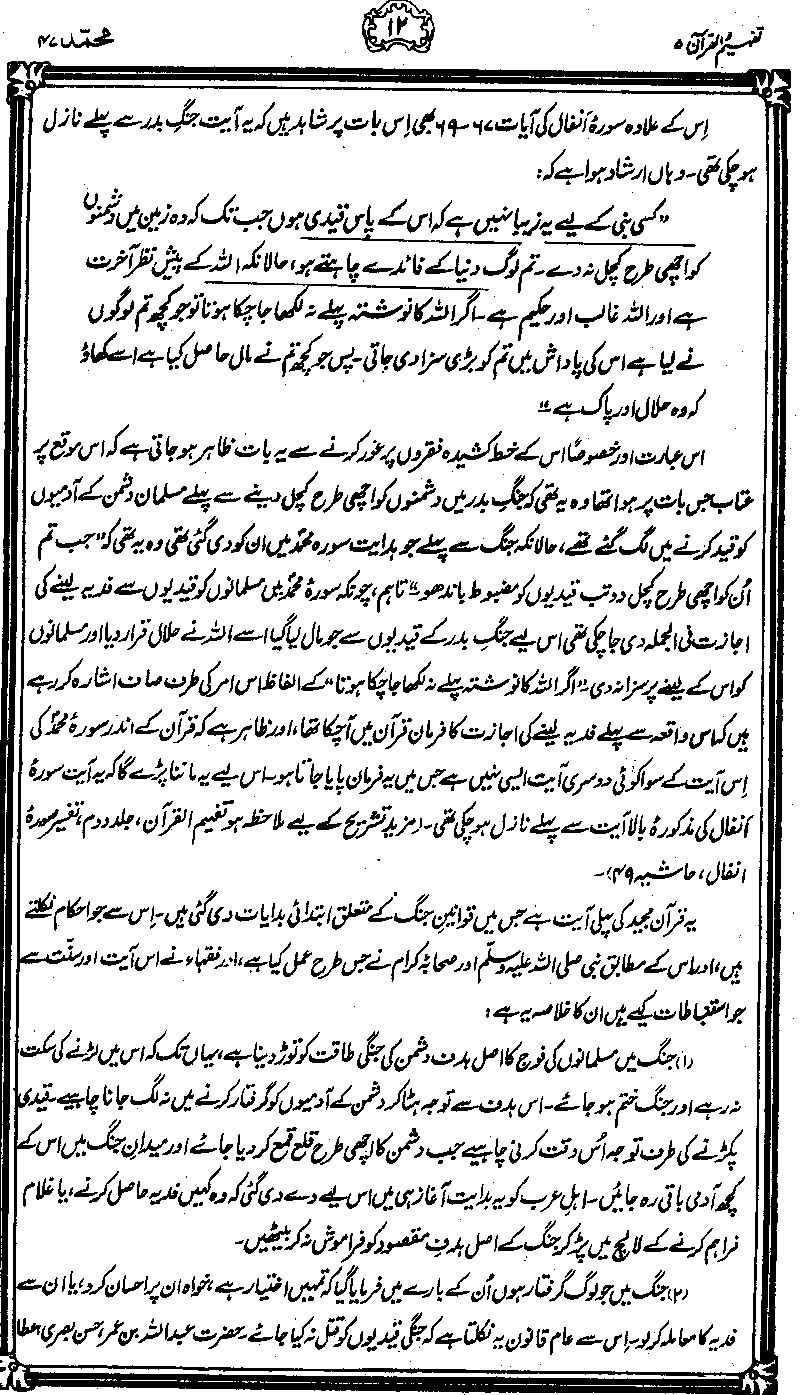 تفہیم القرآن ۵
۱۲
محمّد ۴۷
اِس کے علاوہ سورۂ اَنفال کی آیات ۶۷-۶۹ بھی اِس بات پر شاہد ہیں کہ یہ آیت جنگِ بدر سے پہلے نازل
ہو چکی تھی۔ وہاں ارشاد ہوا ہے کہ:
”کسی نبی کے لیے یہ زیبا نہیں ہے کہ اس کے پاس قیدی ہوں جب تک کہ وہ زمین میں دشمنوں
کو اچھی طرح کچل نہ دے۔ تم لوگ دنیا کے فائدے چاہتے ہو، حالانکہ اللہ کے پیشِ نظر آخرت
ہے اور اللہ غالب اور حکیم ہے۔ اگر اللہ کا نوشتہ پہلے نہ لکھا جا چکا ہوتا تو جو کچھ تم لوگوں
نے لیا ہے اس کی پاداش میں تم کو بڑی سزا دی جاتی۔ پس جو کچھ تم نے مال حاصل کیا ہے اسے کھاؤ
کہ وہ حلال اور پاک ہے“
اس عبارت اور خصوصاً اس کے خط کشیدہ فقروں پر غور کرنے سے یہ بات ظاہر ہو جاتی ہے کہ اس موقع پر
عتاب جس بات پر ہوا تھا وہ یہ تھی کہ جنگِ بدر میں دشمنوں کو اچھی طرح کچل دینے سے پہلے مسلمان دشمن کے آدمیوں
کو قید کرنے میں لگ گئے تھے، حالانکہ جنگ سے پہلے جو ہدایت سورہ محمدؐ میں ان کو دی گئی تھی وہ یہ تھی کہ ”جب تم
اُن کو اچھی طرح کچل دو تب قیدیوں کو مضبوط باندھو“ تاہم، چونکہ سورۂ محمدؐ میں مسلمانوں کو قیدیوں سے فدیہ لینے کی
اجازت فی الجملہ دی جا چکی تھی اس لیے جنگِ بدر کے قیدیوں سے جو مال لیا گیا اسے اللہ نے حلال قرار دیا اور مسلمانوں
کو اس کے لینے پر سزا نہ دی۔ ”اگر اللہ کا نوشتہ پہلے نہ لکھا جا چکا ہوتا“ کے الفاظ اس امر کی طرف صاف اشارہ کر رہے
ہیں کہ اس واقعہ سے پہلے فدیہ لینے کی اجازت کا فرمان قرآن میں آ چکا تھا، اور ظاہر ہے کہ قرآن کے اندر سورۂ محمدؐ کی
اِس آیت کے سوا کوئی دوسری آیت ایسی نہیں ہے جس میں یہ فرمان پایا جاتا ہو۔ اس لیے یہ ماننا پڑے گا کہ یہ آیت سورۂ
اَنفال کی مذکورۂ بالا آیت سے پہلے نازل ہو چکی تھی۔ (مزید تشریح کے لیے ملاحظہ ہو تفہیم القرآن، جلد دوم، تفسیر سورۂ
انفال، حاشیہ ۴۹)۔
یہ قرآن مجید کی پہلی آیت ہے جس میں قوانینِ جنگ کے متعلق ابتدائی ہدایات دی گئی ہیں۔ اِس سے جو احکام نکلتے
ہیں، اور اس کے مطابق نبی صلی اللہ علیہ وسلّم اور صحابۂ کرام نے جس طرح عمل کیا ہے، اور فقہاء نے اس آیت اور سنّت سے
جو استنباطات کیے ہیں ان کا خلاصہ یہ ہے:
(۱) جنگ میں مسلمانوں کی فوج کا اصل ہدف دشمن کی جنگی طاقت کو توڑ دینا ہے، یہاں تک کہ اس میں لڑنے کی سکت
نہ رہے اور جنگ ختم ہو جائے۔ اس ہدف سے توجہ ہٹا کر دشمن کے آدمیوں کو گرفتار کرنے میں نہ لگ جانا چاہیے۔ قیدی
پکڑنے کی طرف توجہ اُس وقت کرنی چاہیے جب دشمن کا اچھی طرح قلع قمع کر دیا جائے اور میدانِ جنگ میں اس کے
کچھ آدمی باقی رہ جائیں۔ اہلِ عرب کو یہ ہدایت آغاز ہی میں اس لیے دے دی گئی کہ وہ کہیں فدیہ حاصل کرنے، یا غلام
فراہم کرنے کے لالچ میں پڑ کر جنگ کے اصل ہدفِ مقصود کو فراموش نہ کر بیٹھیں۔
(۲) جنگ میں جو لوگ گرفتار ہوں اُن کے بارے میں فرمایا گیا کہ تمہیں اختیار ہے، خواہ ان پر احسان کرو، یا ان سے
فدیہ کا معاملہ کر لو۔ اِس سے عام قانون یہ نکلتا ہے کہ جنگی قیدیوں کو قتل نہ کیا جائے۔ حضرت عبداللہ بن عمر، حسن بصری، عطا